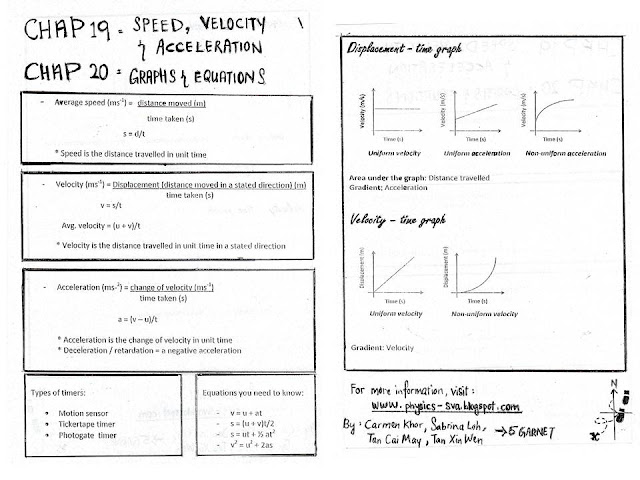 CHAP 19 = SPEED, VELOCITY
& ACCELERATION
CHAP 20 = GRAPHS & EQUATIONS
- Average speed (ms⁻¹) = distance moved (m)
time taken (s)
s = d/t
* Speed is the distance travelled in unit time
- Velocity (ms⁻¹) = Displacement (distance moved in a stated direction) (m)
time taken (s)
v = s/t
Avg. velocity = (u + v)/t
* Velocity is the distance travelled in unit time in a stated direction
- Acceleration (ms⁻¹) = change of velocity (ms⁻¹)
time taken (s)
a = (v – u)/t
* Acceleration is the change of velocity in unit time
* Deceleration / retardation = a negative acceleration
Types of timers:
• Motion sensor
• Tickertape timer
• Photogate timer
Equations you need to know:
- v = u + at
- s = (u + v)t/2
- s = ut + ½ at²
- v² = u² + 2as
Displacement – time graph
Velocity (m/s)
Time (s)
Uniform velocity
Velocity (m/s)
Time (s)
Uniform acceleration
Velocity (m/s)
Time (s)
Non-uniform acceleration
Area under the graph: Distance travelled
Gradient: Acceleration
Velocity – time graph
Displacement (m)
Time (s)
Uniform velocity
Displacement (m)
Time (s)
Non-uniform velocity
Gradient: Velocity
For more information, visit :
www.physics-sva.blogspot.com
By : Carmen Khor, Sabrina Loh,
Tan Cai May, Tan Xin Wen → 5 GARNET
N